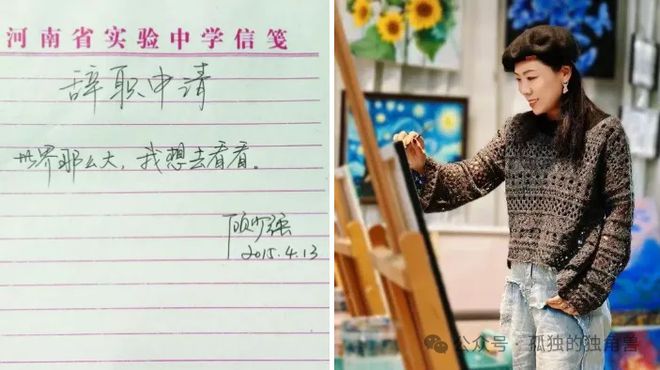 河南省实验中学信笺
辞职申请
世界那么大，我想去看看。
顾少强
2015.4.13
公众号·孤独的独角兽